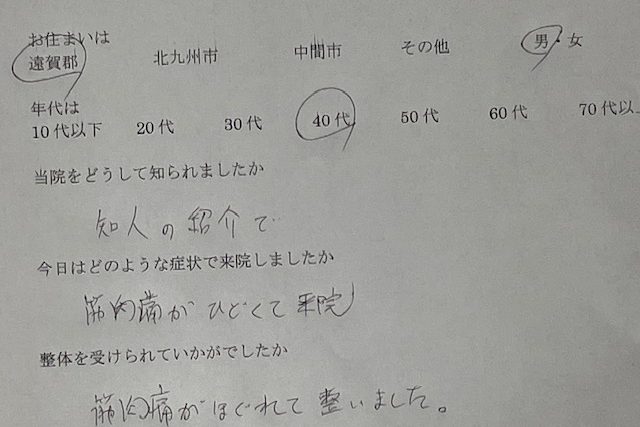 お住まいは
遠賀郡 北九州市 中間市 その他 男・女
年代は
10代以下 20代 30代 40代 50代 60代 70代以上
当院をどうして知られましたか
知人の紹介で
今日はどのような症状で来院しましたか
筋肉痛がひどくて来院
整体を受けられていかがでしたか
筋肉痛がほぐれて整いました。